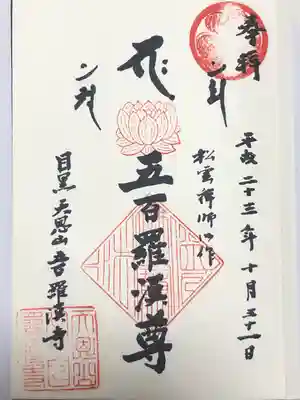 奉拝
平成二十三年十月三十一日
松雲禅師御作
五百羅漢尊
目黒 天恩山 五百羅漢寺